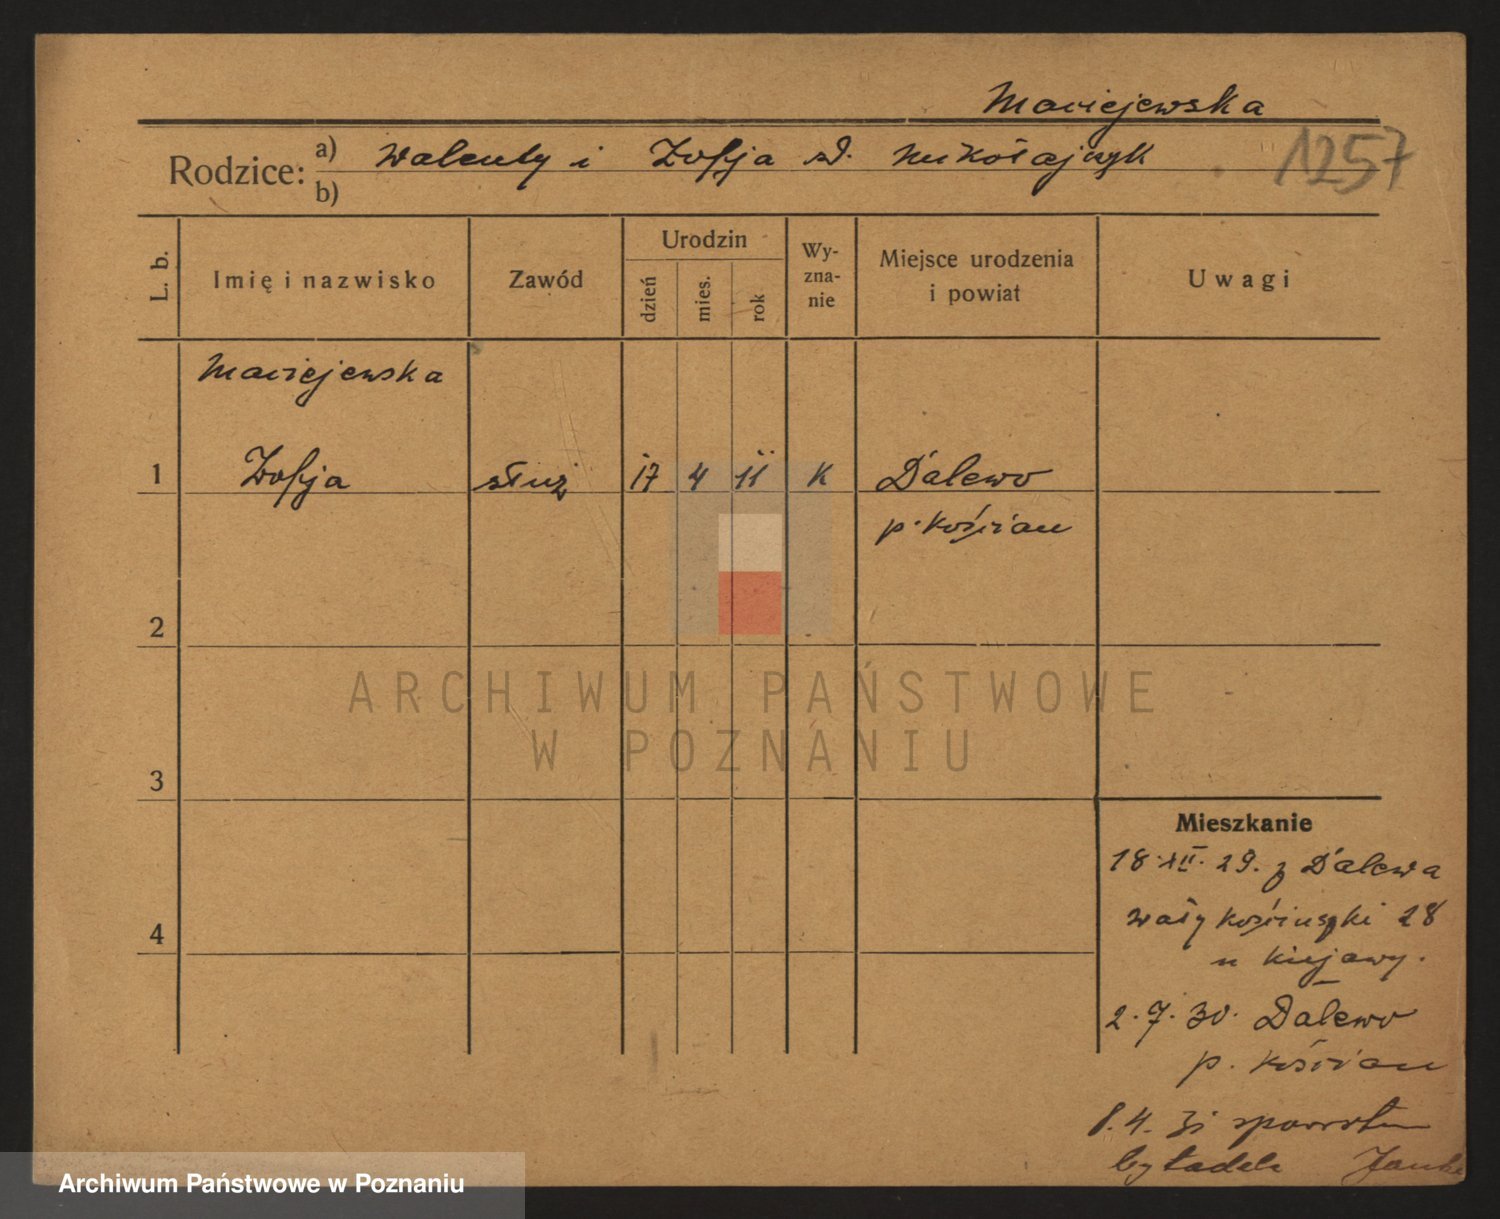 Maciejewska
1257
Rodzice: a) Walenty i Zofja zd. Mikołajczyk
b)
L. b. Imię i nazwisko Zawód Urodzin dzień mies. rok Wy-zna-nie Miejsce urodzenia i powiat Uwagi
Maciejewska
1 Zofja służ 17 4 11 K Dalewo
p. Kościan
2
ARCHIWUM PAŃSTWOWE
W POZNANIU
3
Mieszkanie
18.XII.29. z Dalewa
4
Wały Kościuszki 28
u Kujawy.
2.7.30. Dalewo
p. Kościan
8.4. 31
Archiwum Państwowe w Poznaniu